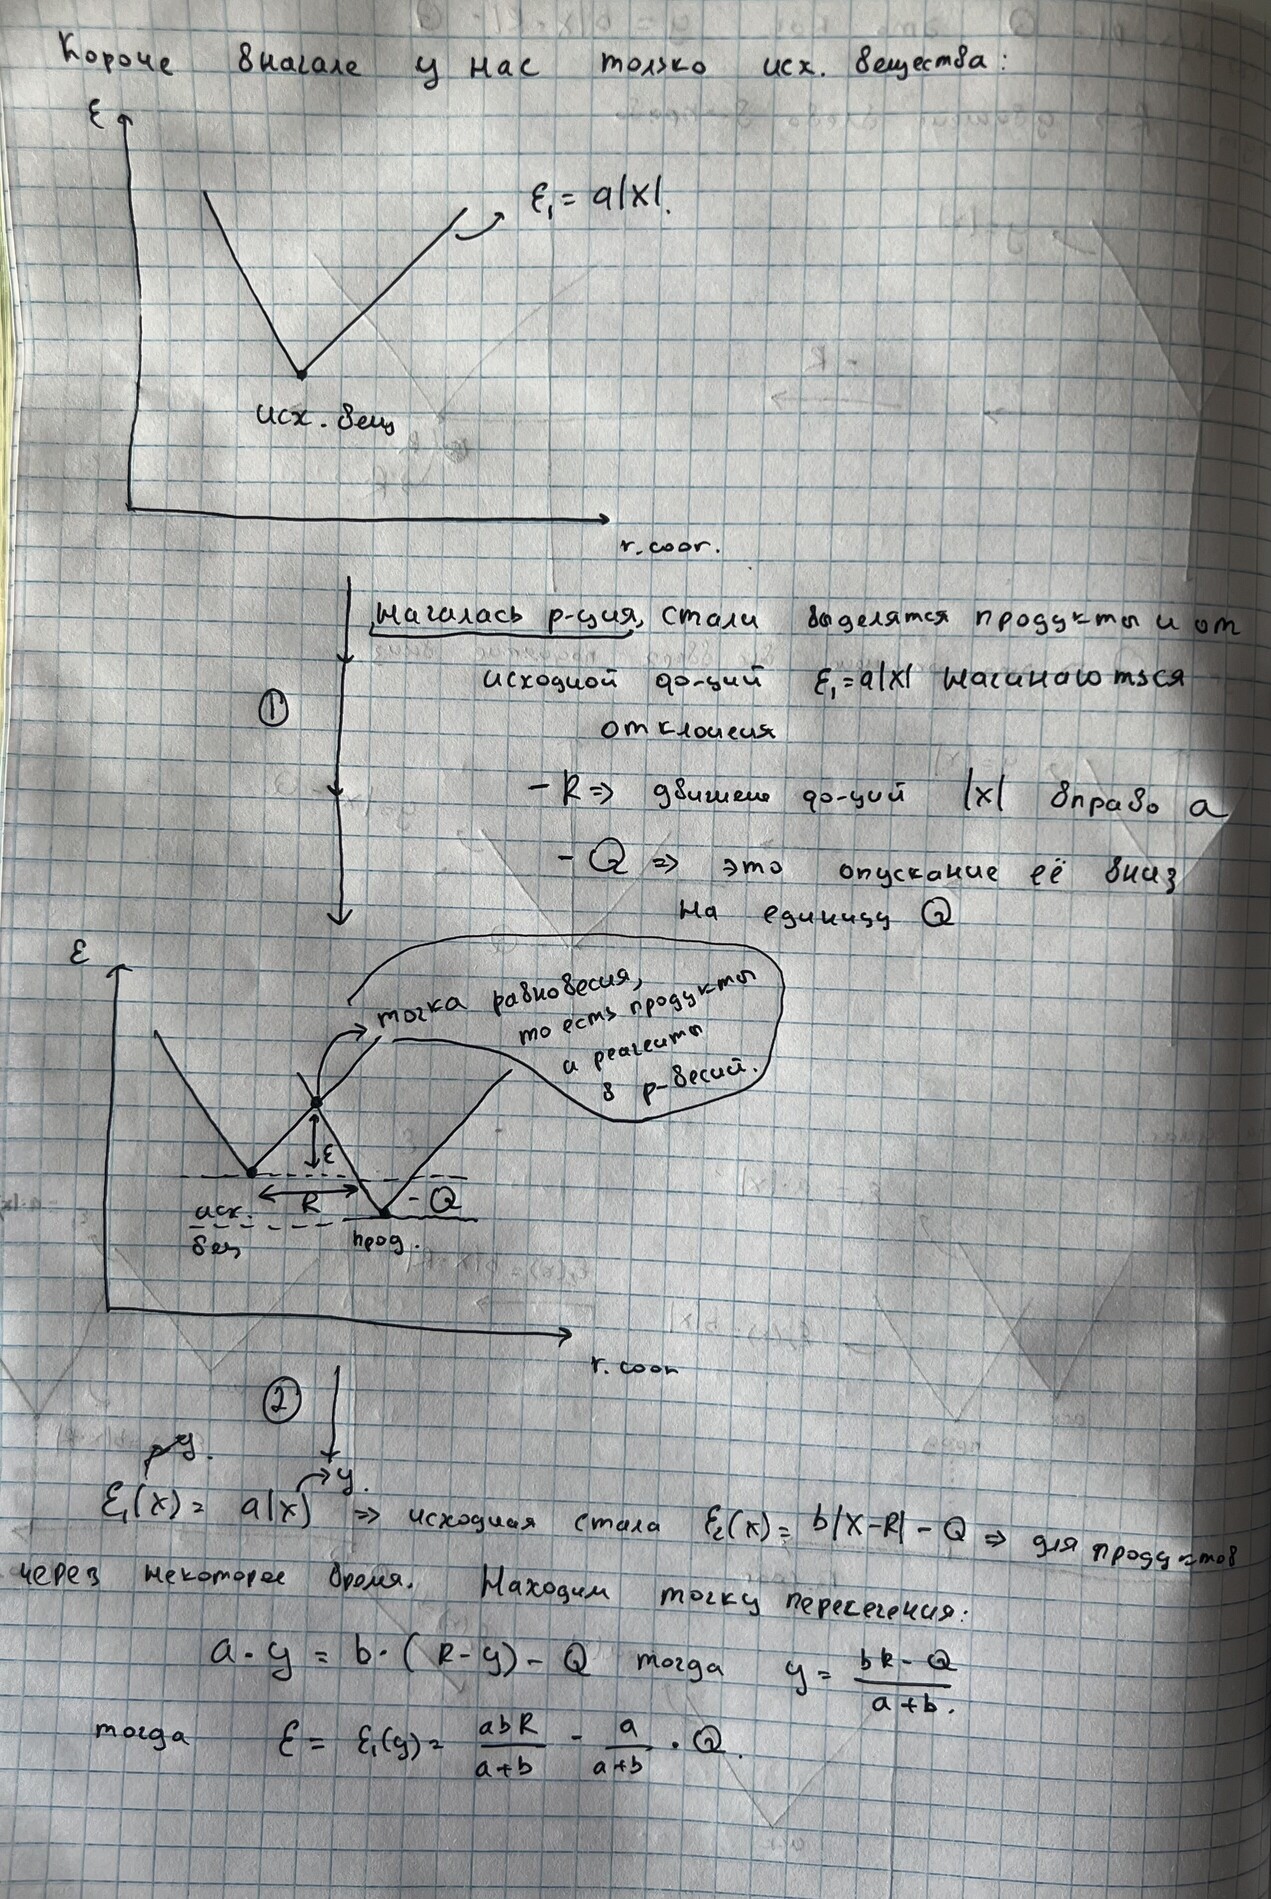 Короче вначале у нас только исх. вещества:
ε
ε₁ = a|x|.
исх. вещ
r. coor.
началась р-ция, стали выделятся продукты и от
исходной фо-ций ε₁=a|x| начинаються
отклонения
①
- R => движение фо-ций |x| вправо а
- Q => это опускание её вниз
на единицу Q
ε
точка равновесия,
то есть продукты
а реагенты
в р-весий.
ε
R
- Q
исх.
вещ
прод.
r. coor
②
y.
ε₁(x) = a|x| → y. => исходная стала ε₂(x) = b|x-R| - Q => для продуктов
через некоторое время. Находим точку пересечения:
a · y = b · (R - y) - Q тогда y = (bR - Q)/(a + b).
тогда ε = ε₁(y) = abR/(a+b) - a/(a+b) · Q.